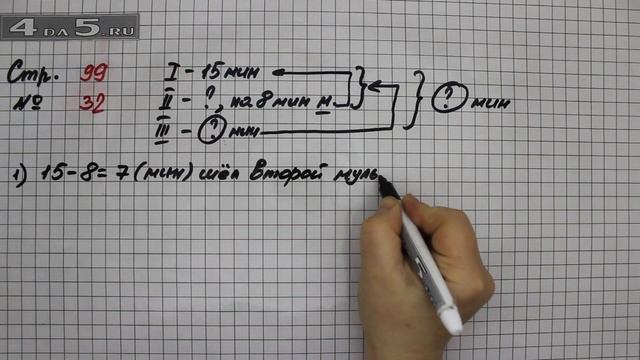 4 DA 5.RU
Стр. 99
№ 32
I - 15 мин
II - ?, на 8 мин м
III - ? мин
? мин
1) 15-8=7 (мин) шёл второй муль